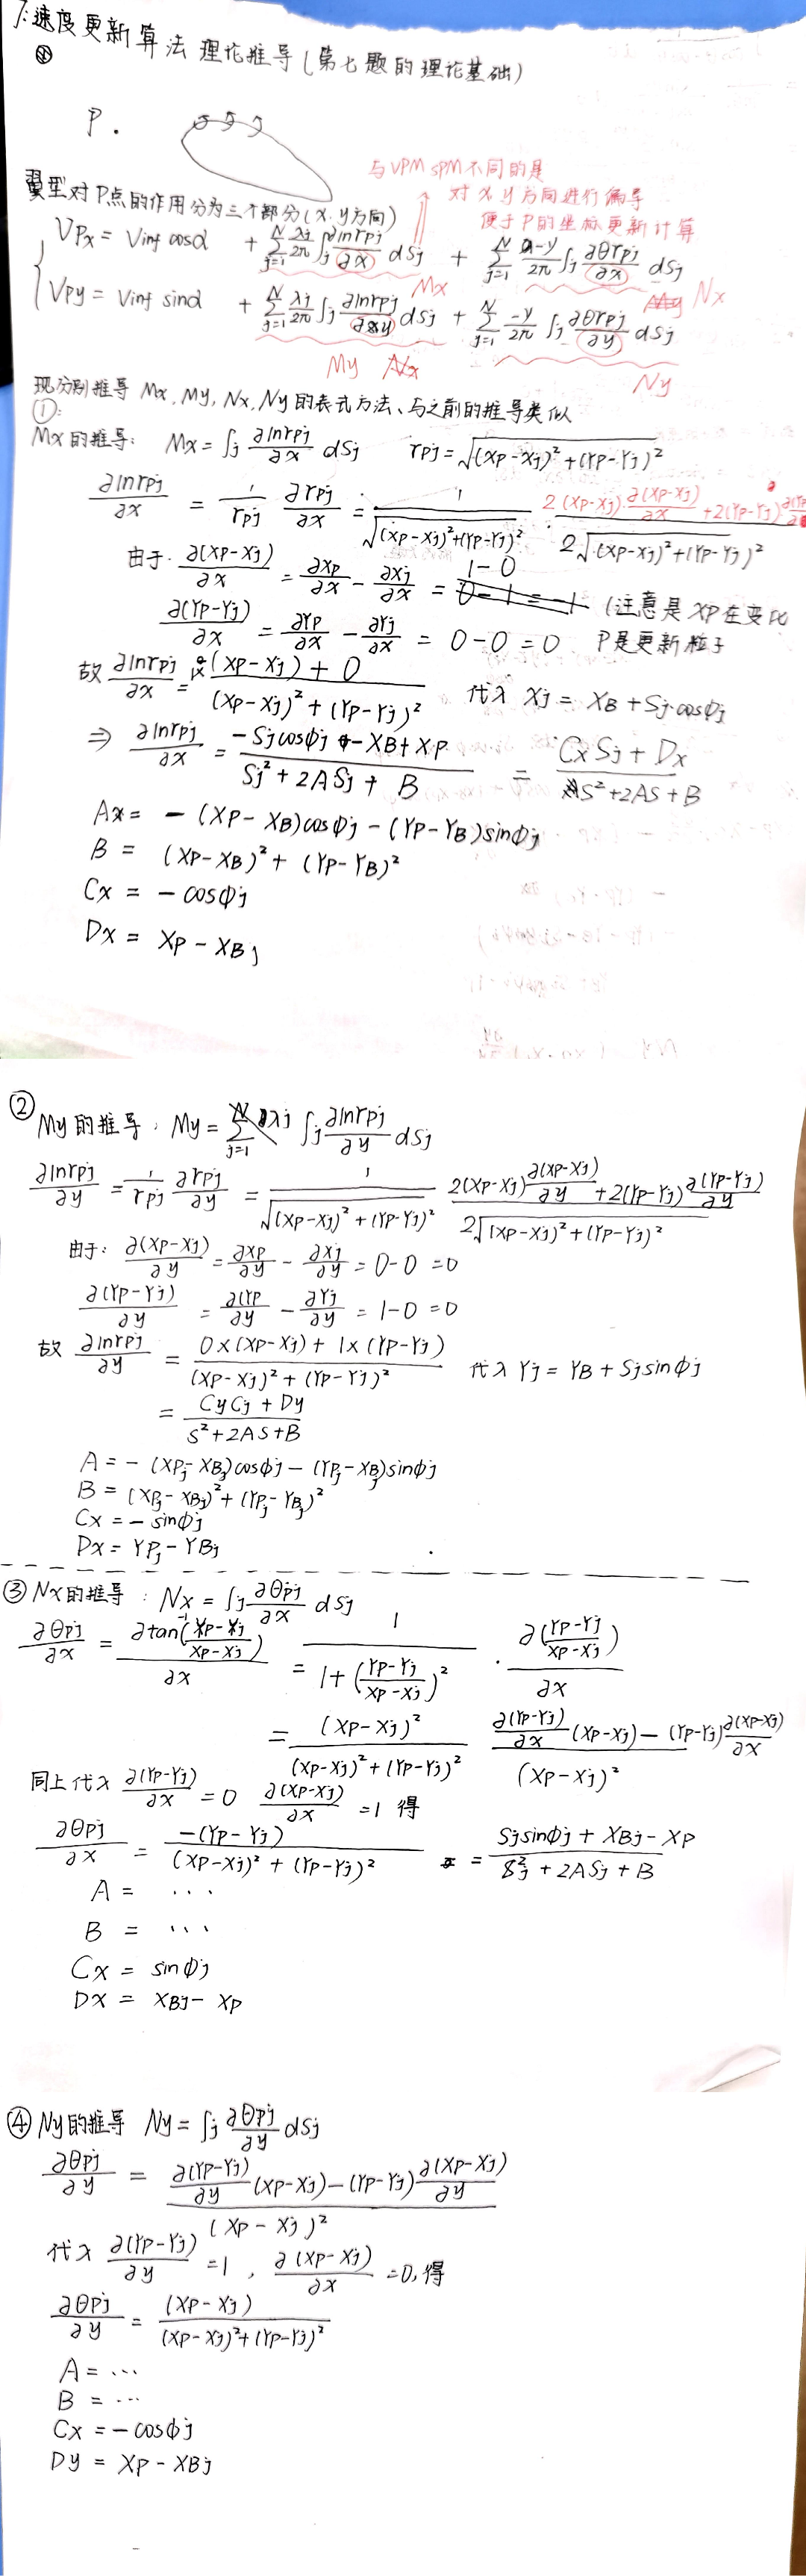 7:速度更新算法理论推导(第七题的理论基础)
P.
与VPM SPM不同的是
对x.y方向进行偏导
便于P的坐标更新计算
翼型对P点的作用分为三个部分(x.y方向)
VPx = Vinf cosα + Σ_{j=1}^{N} λj/2π ∫j ∂lnrpj/∂x dSj + Σ_{j=1}^{N} -γ/2π ∫j ∂θrpj/∂x dSj
Mx Nx
VPy = Vinf sinα + Σ_{j=1}^{N} λj/2π ∫j ∂lnrpj/∂y dSj + Σ_{j=1}^{N} -γ/2π ∫j ∂θrpj/∂y dSj
My Ny
现分别推导 Mx, My, Nx, Ny的表式方法、与之前的推导类似
①:
Mx的推导: Mx = ∫j ∂lnrpj/∂x dSj rpj = √((XP-Xj)²+(YP-Yj)²)
∂lnrpj/∂x = 1/rpj ∂rpj/∂x = 1/√((XP-Xj)²+(YP-Yj)²) · (2(XP-Xj)·∂(XP-Xj)/∂x + 2(YP-Yj)
/ 2√((XP-Xj)²+(YP-Yj)²)
由于· ∂(XP-Xj)/∂x = ∂XP/∂x - ∂Xj/∂x = 1-0
(注意是XP在变化
∂(YP-Yj)/∂x = ∂YP/∂x - ∂Yj/∂x = 0-0=0 P是更新粒子
故 ∂lnrpj/∂x = ((XP-Xj)+0)/((XP-Xj)²+(YP-Yj)²) 代入 Xj = XB + Sj cosΦj
⇒ ∂lnrpj/∂x = (-SjcosΦj - XB + XP)/(Sj²+2ASj+B) = (CxSj+Dx)/(S²+2AS+B)
Ax = -(XP-XB)cosΦj-(YP-YB)sinΦj
B = (XP-XB)²+(YP-YB)²
Cx = -cosΦj
Dx = XP-XBj
② My的推导: My = ∫j ∂lnrpj/∂y dSj
∂lnrpj/∂y = 1/rpj ∂rpj/∂y = 1/√((XP-Xj)²+(YP-Yj)²) (2(XP-Xj)∂(XP-Xj)/∂y+2(YP-Yj)∂(YP-Yj)/∂y)/2√((XP-Xj)²+(YP-Yj)²)
由于: ∂(XP-Xj)/∂y = ∂XP/∂y - ∂Xj/∂y = 0-0 =0
∂(YP-Yj)/∂y = ∂(YP/∂y - ∂Yj/∂y = 1-0 =0
故 ∂lnrpj/∂y = (0×(XP-Xj)+1×(YP-Yj))/((XP-Xj)²+(YP-Yj)²) 代入 Yj = YB + SjsinΦj
= (CyCj+Dy)/(S²+2AS+B)
A = -(XPj-XBj)cosΦj-(YPj-XBj)sinΦj
B = (XPj-XBj)²+(YPj-YBj)²
Cx = -sinΦj
Dx = YPj-YBj
③ Nx的推导: Nx = ∫j ∂θpj/∂x dSj
∂θpj/∂x = ∂tan⁻¹((YP-Yj)/(XP-Xj))/∂x = 1/(1+((YP-Yj)/(XP-Xj))²) · ∂((YP-Yj)/(XP-Xj))/∂x
= (XP-Xj)²/((XP-Xj)²+(YP-Yj)²) (∂(YP-Yj)/∂x (XP-Xj)-(YP-Yj)∂(XP-Xj)/∂x)/(XP-Xj)²
同上代入 ∂(YP-Yj)/∂x =0 ∂(XP-Xj)/∂x =1 得
∂θpj/∂x = -(YP-Yj)/((XP-Xj)²+(YP-Yj)²) = (SjsinΦj+XBj-XP)/(Sj²+2ASj+B)
A = ...
B = ...
Cx = sinΦj
Dx = XBj-XP
④ Ny的推导 Ny = ∫j ∂θpj/∂y dSj
∂θpj/∂y = (∂(YP-Yj)/∂y (XP-Xj)-(YP-Yj)∂(XP-Xj)/∂y)/(XP-Xj)²
代入 ∂(YP-Yj)/∂y =1 , ∂(XP-Xj)/∂x =0,得
∂θpj/∂y = (XP-Xj)/((XP-Xj)²+(YP-Yj)²)
A = ...
B = ...
Cx = -cosΦj
Dy = XP-XBj